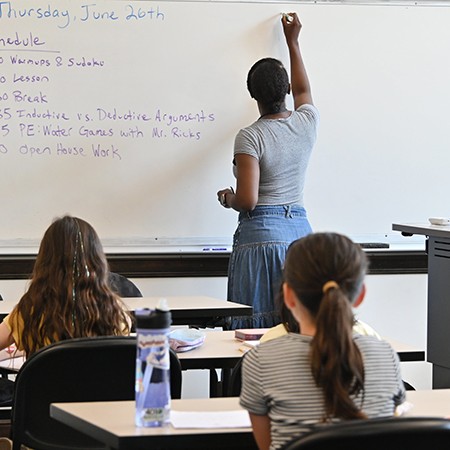 Thursday, June 26th
hedule
0 Warmups & Sudoku
0 Lesson
30 Break
35 Inductive vs. Deductive Arguments
5 PE: Water Games with Mr. Ricks
0 Open House Work